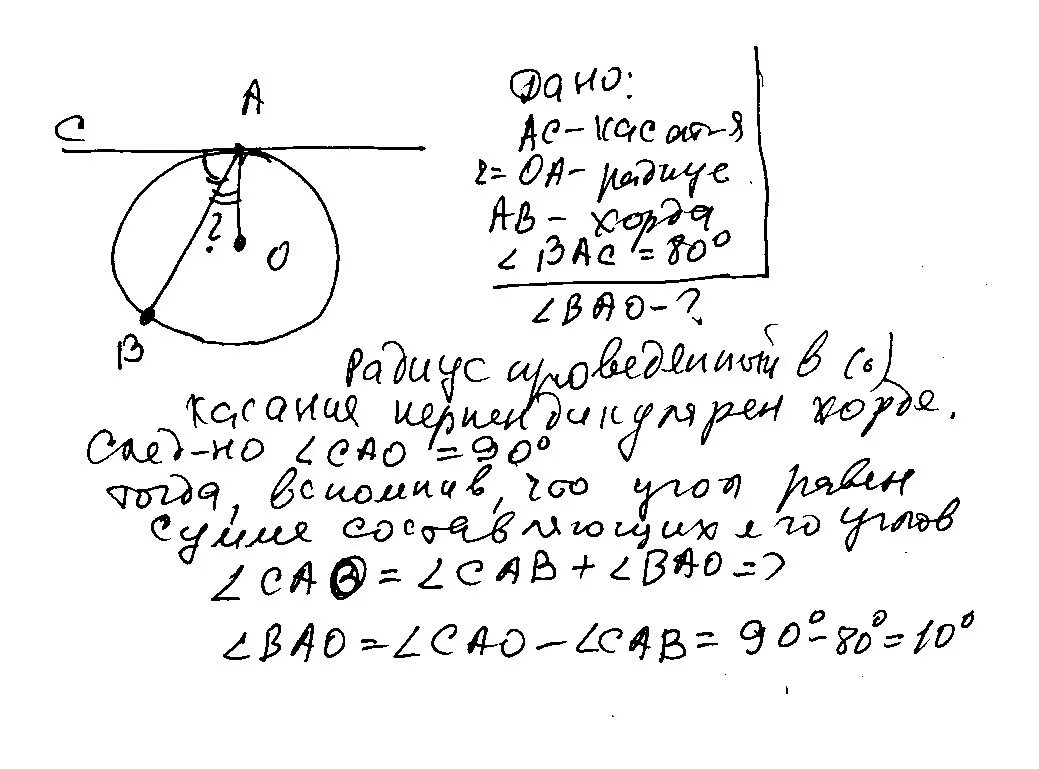 A
C
?
O
B
Дано:
AC – касат-я
r = OA – радиус
AB – хорда
∠BAC = 80°
∠BAO – ?
Радиус проведённый в (·)
касания перпендикулярен хорде.
След-но ∠CAO = 90°
тогда, вспомнив, что угол равен
сумме составляющих его углов
∠CAO = ∠CAB + ∠BAO =>
∠BAO = ∠CAO – ∠CAB = 90° – 80° = 10°